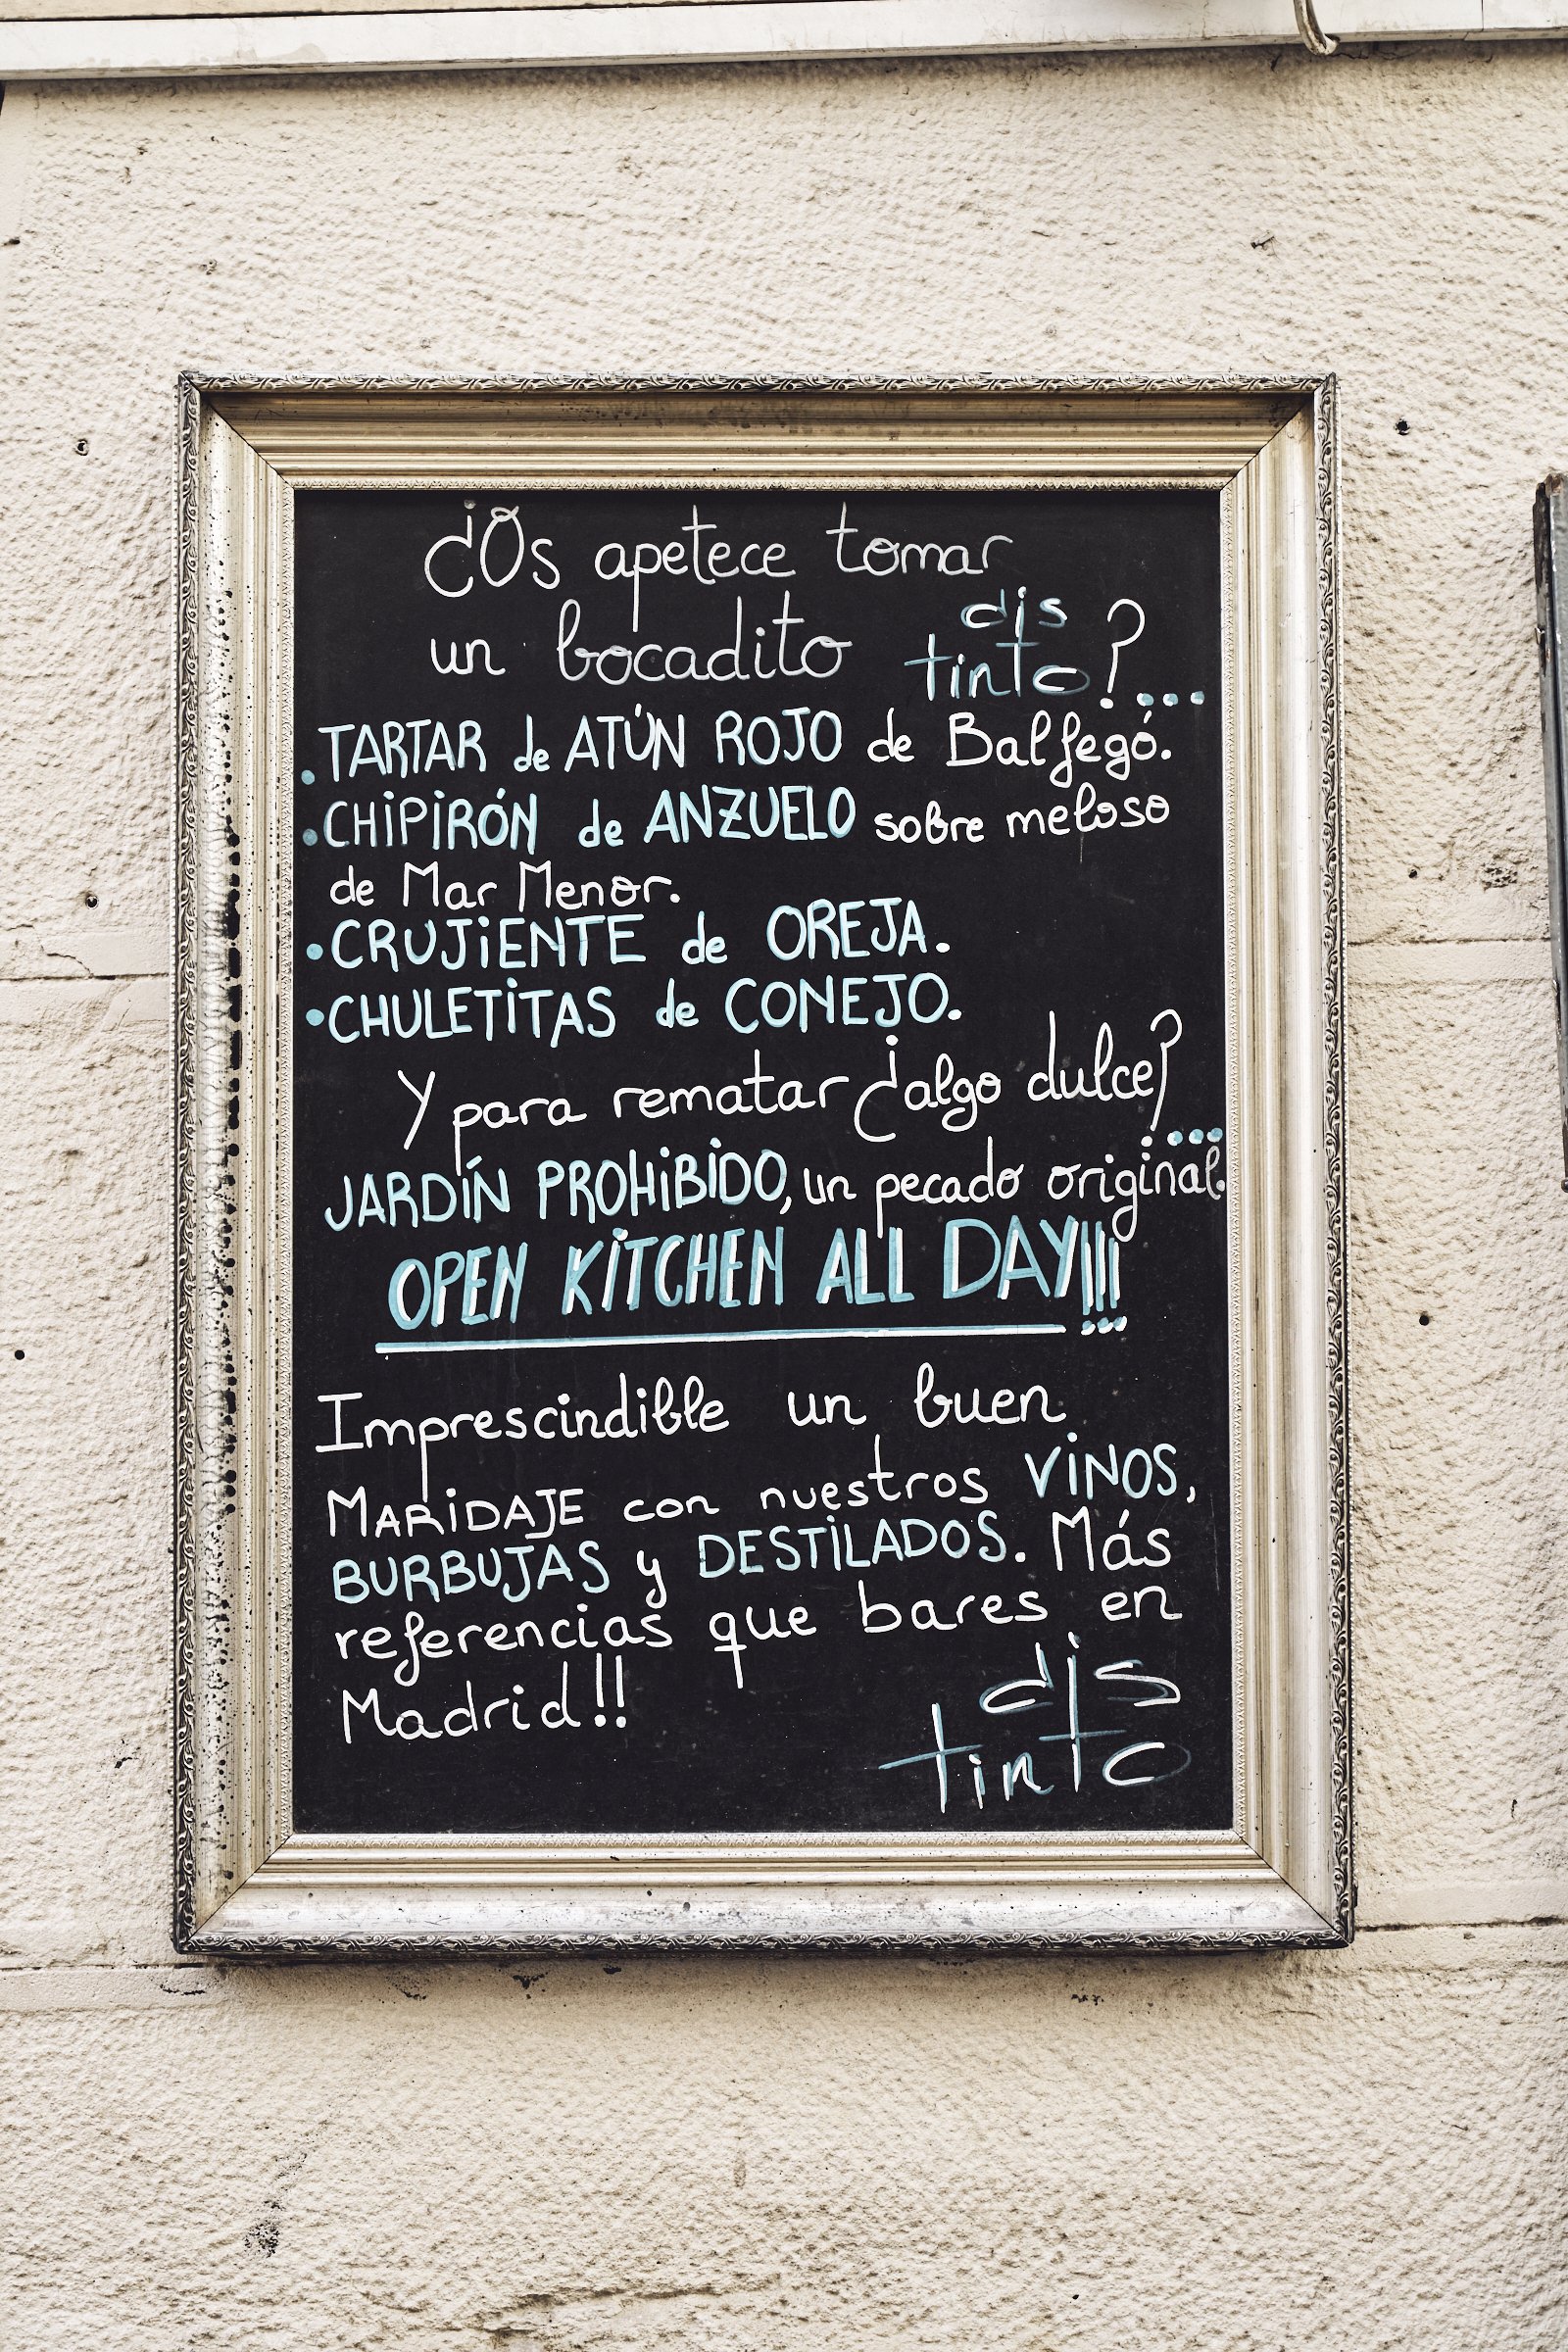 ¿Os apetece tomar
un bocadito dis
tinto?...
.TARTAR de ATÚN ROJO de Balfegó.
•CHiPiRÓN de ANZUELO sobre meloso
de Mar Menor.
•CRUJiENTE de OREJA.
•CHULETiTAS de CONEJO.
Y para rematar ¿algo dulce?...
JARDÍN PROHiBiDO, un pecado original.
OPEN KiTCHEN ALL DAY!!!
Imprescindible un buen
MARiDAJE con nuestros ViNOS,
BURBUJAS y DESTiLADOS. Más
referencias que bares en
Madrid!!
dis
tinto